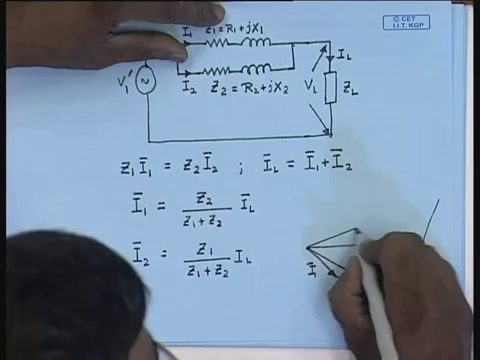 © CET
I.I.T. KGP
I₁ Z₁ = R₁ + jX₁
I_L
V₁' I₂ Z₂ = R₂ + jX₂ V_L Z_L
Z₁ Ī₁ = Z₂ Ī₂ ; Ī_L = Ī₁ + Ī₂
Ī₁ = Z₂ / (Z₁ + Z₂) Ī_L
Ī₂ = Z₁ / (Z₁ + Z₂) I_L